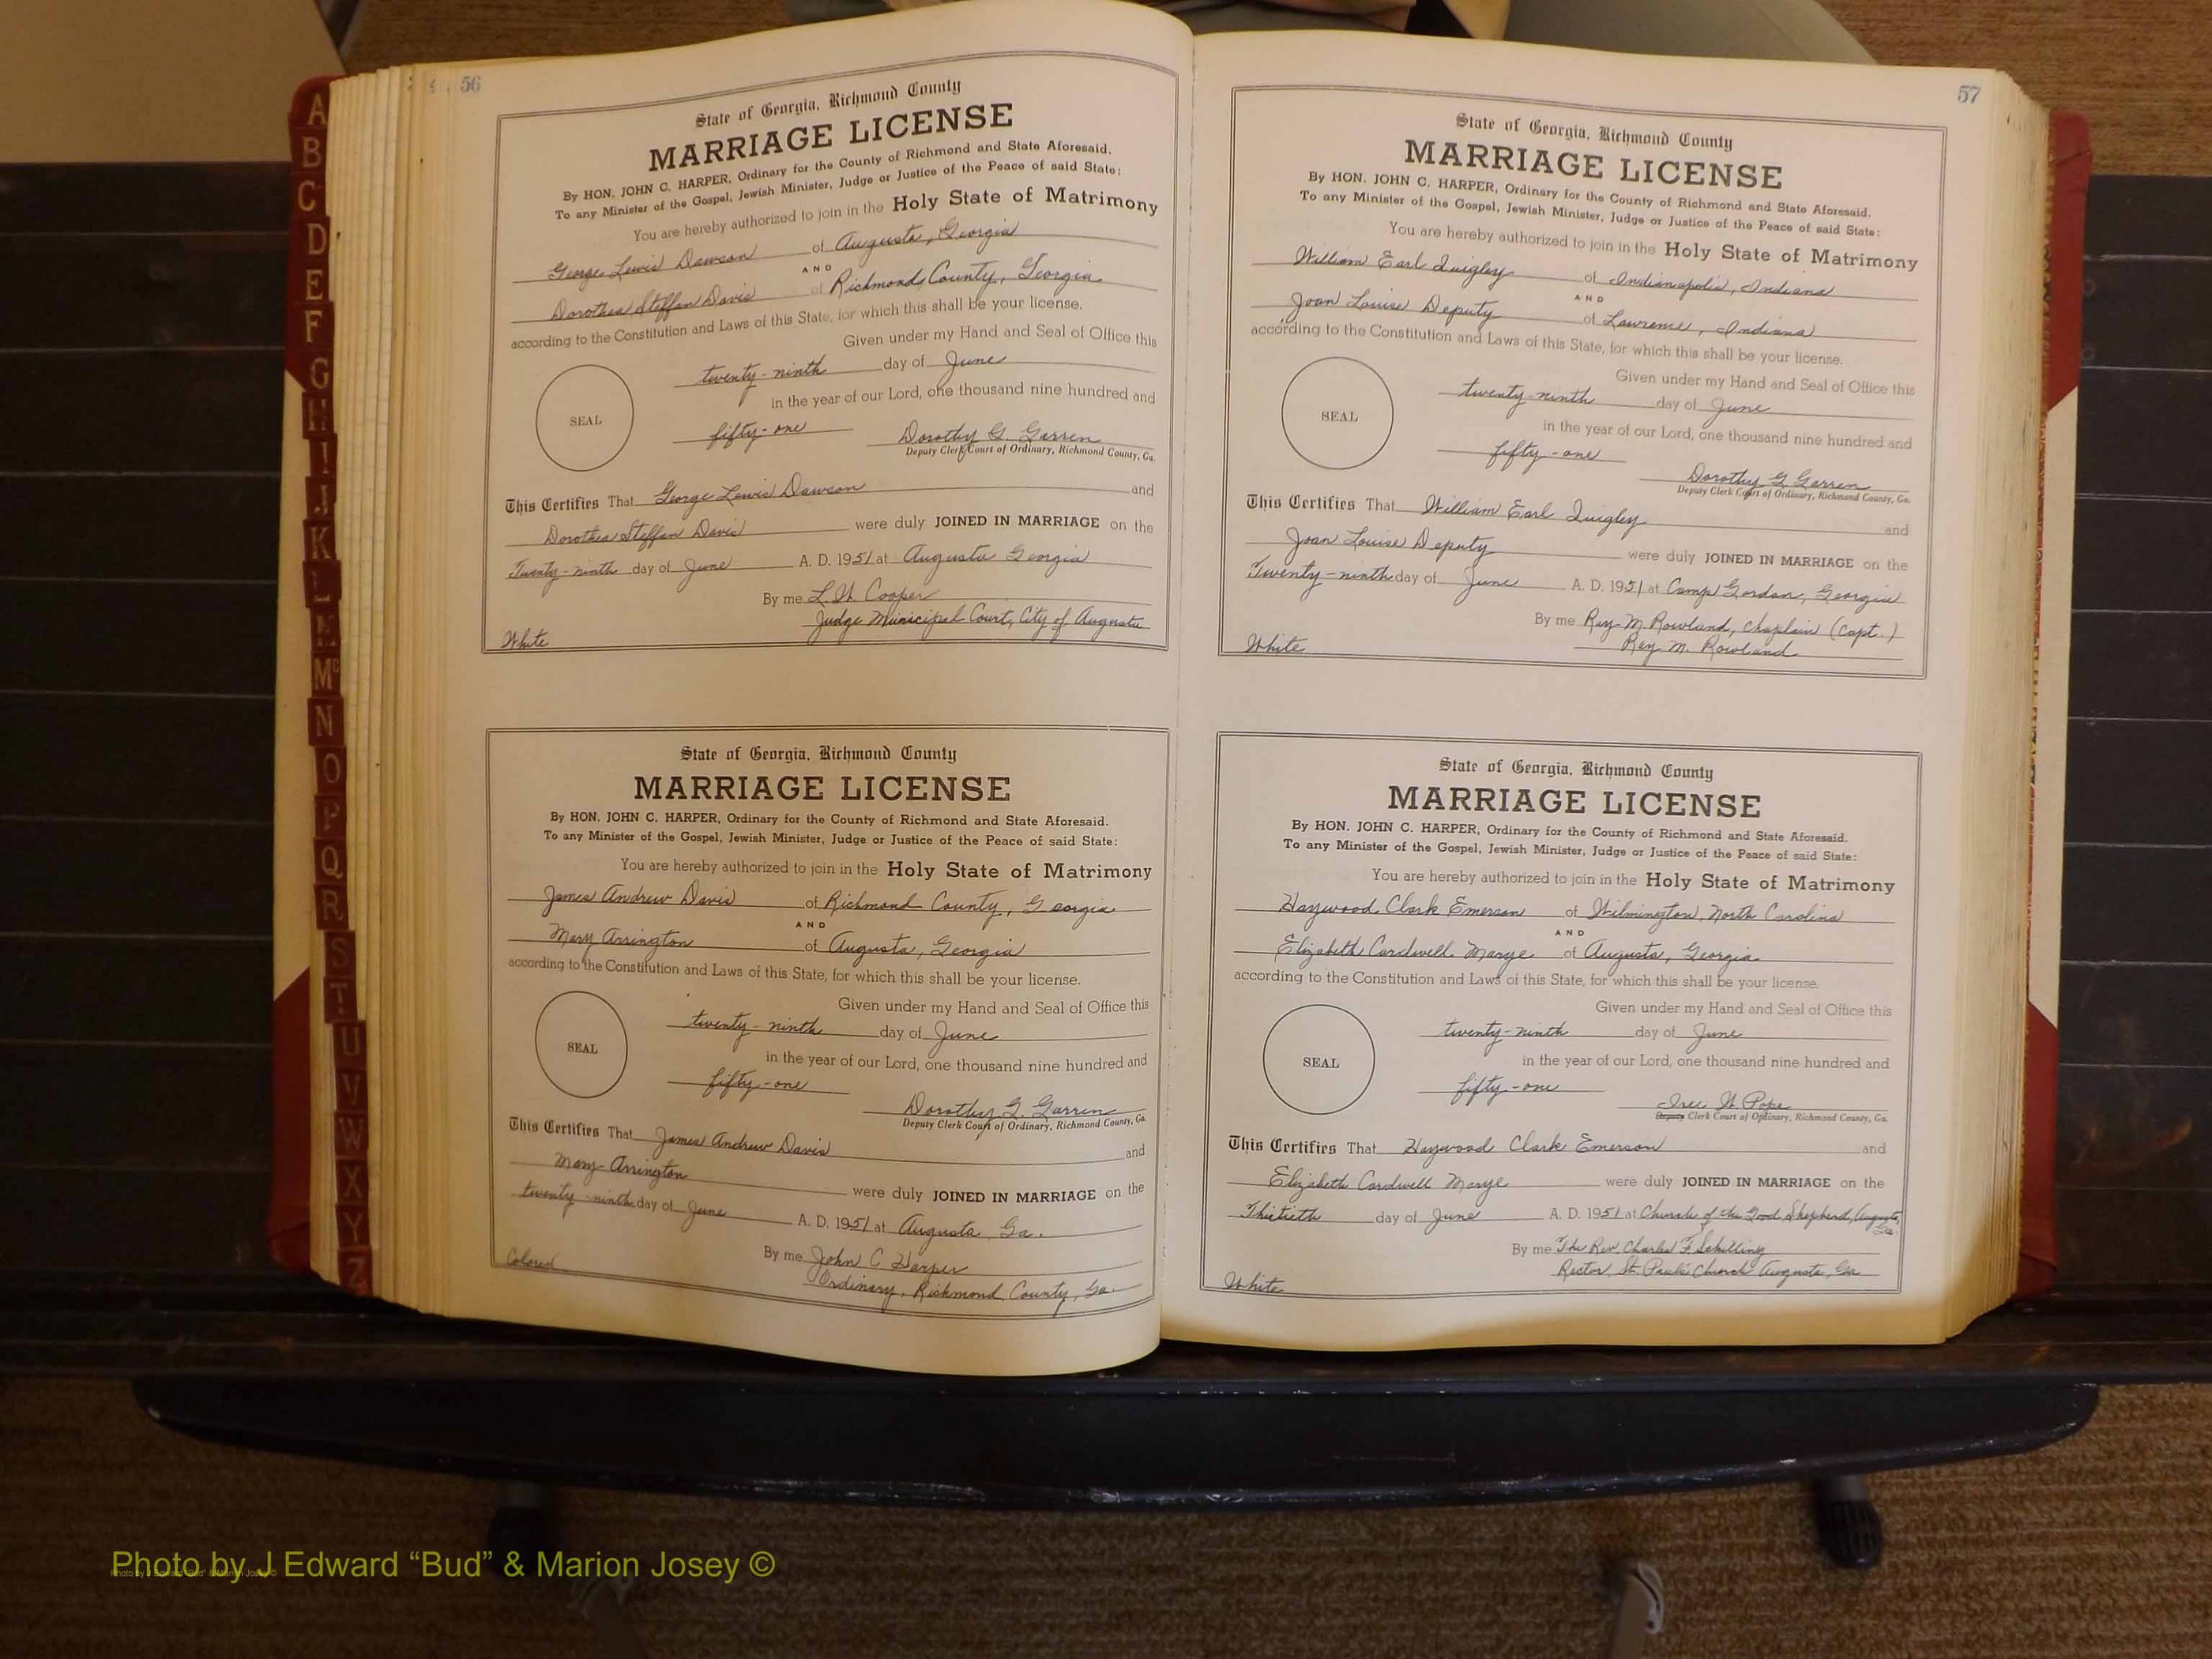 56
State of Georgia, Richmond County
MARRIAGE LICENSE
By HON. JOHN C. HARPER, Ordinary for the County of Richmond and State Aforesaid.
To any Minister of the Gospel, Jewish Minister, Judge or Justice of the Peace of said State:
You are hereby authorized to join in the Holy State of Matrimony
George Lewis Dawson of Augusta, Georgia
AND
Dorothea Steffan Davis of Richmond County, Georgia
according to the Constitution and Laws of this State, for which this shall be your license.
Given under my Hand and Seal of Office this
twenty-ninth day of June
in the year of our Lord, one thousand nine hundred and
SEAL
fifty-one Dorothy G. Garren
Deputy Clerk Court of Ordinary, Richmond County, Ga.
This Certifies That George Lewis Dawson and
Dorothea Steffan Davis were duly JOINED IN MARRIAGE on the
Twenty-ninth day of June A. D. 1951 at Augusta Georgia
By me L. H. Cooper
Judge Municipal Court, City of Augusta
White
State of Georgia, Richmond County
MARRIAGE LICENSE
By HON. JOHN C. HARPER, Ordinary for the County of Richmond and State Aforesaid.
To any Minister of the Gospel, Jewish Minister, Judge or Justice of the Peace of said State:
You are hereby authorized to join in the Holy State of Matrimony
James Andrew Davis of Richmond County, Georgia
AND
Mary Arrington of Augusta, Georgia
according to the Constitution and Laws of this State, for which this shall be your license.
Given under my Hand and Seal of Office this
twenty-ninth day of June
SEAL
in the year of our Lord, one thousand nine hundred and
fifty-one
Dorothy G. Garren
Deputy Clerk Court of Ordinary, Richmond County, Ga.
This Certifies That James Andrew Davis and
Mary Arrington were duly JOINED IN MARRIAGE on the
twenty-ninth day of June A. D. 1951 at Augusta, Ga.
By me John C Harper
Ordinary, Richmond County, Ga.
Colored
57
State of Georgia, Richmond County
MARRIAGE LICENSE
By HON. JOHN C. HARPER, Ordinary for the County of Richmond and State Aforesaid.
To any Minister of the Gospel, Jewish Minister, Judge or Justice of the Peace of said State:
You are hereby authorized to join in the Holy State of Matrimony
William Earl Quigley of Indianapolis, Indiana
AND
Joan Louise Deputy of Lawrence, Indiana
according to the Constitution and Laws of this State, for which this shall be your license.
Given under my Hand and Seal of Office this
twenty-ninth day of June
SEAL
in the year of our Lord, one thousand nine hundred and
fifty-one
Dorothy G. Garren
Deputy Clerk Court of Ordinary, Richmond County, Ga.
This Certifies That William Earl Quigley and
Joan Louise Deputy were duly JOINED IN MARRIAGE on the
Twenty-ninth day of June A. D. 1951 at Camp Gordon, Georgia
By me Ray M. Rowland, Chaplain (Capt.)
Ray M. Rowland
White
State of Georgia, Richmond County
MARRIAGE LICENSE
By HON. JOHN C. HARPER, Ordinary for the County of Richmond and State Aforesaid.
To any Minister of the Gospel, Jewish Minister, Judge or Justice of the Peace of said State:
You are hereby authorized to join in the Holy State of Matrimony
Haywood Clark Emerson of Wilmington, North Carolina
AND
Elizabeth Cardwell Marye of Augusta, Georgia
according to the Constitution and Laws of this State, for which this shall be your license.
Given under my Hand and Seal of Office this
twenty-ninth day of June
SEAL
in the year of our Lord, one thousand nine hundred and
fifty-one
H. Pope
Deputy Clerk Court of Ordinary, Richmond County, Ga.
This Certifies That Haywood Clark Emerson and
Elizabeth Cardwell Marye were duly JOINED IN MARRIAGE on the
Thitieth day of June A. D. 1951 at Church of the Good Shepherd, Augusta,
Ga.
By me The Rev. Charles F. Schilling
Rector, St. Paul's Church Augusta, Ga
White
A
B
C
D
E
F
G
H
I
J
K
L
M
Mc
N
O
P
Q
R
S
T
U
V
W
X
Y
Z
Photo by J Edward “Bud” & Marion Josey ©
Photo by J Edward "Bud" & Marion Josey ©